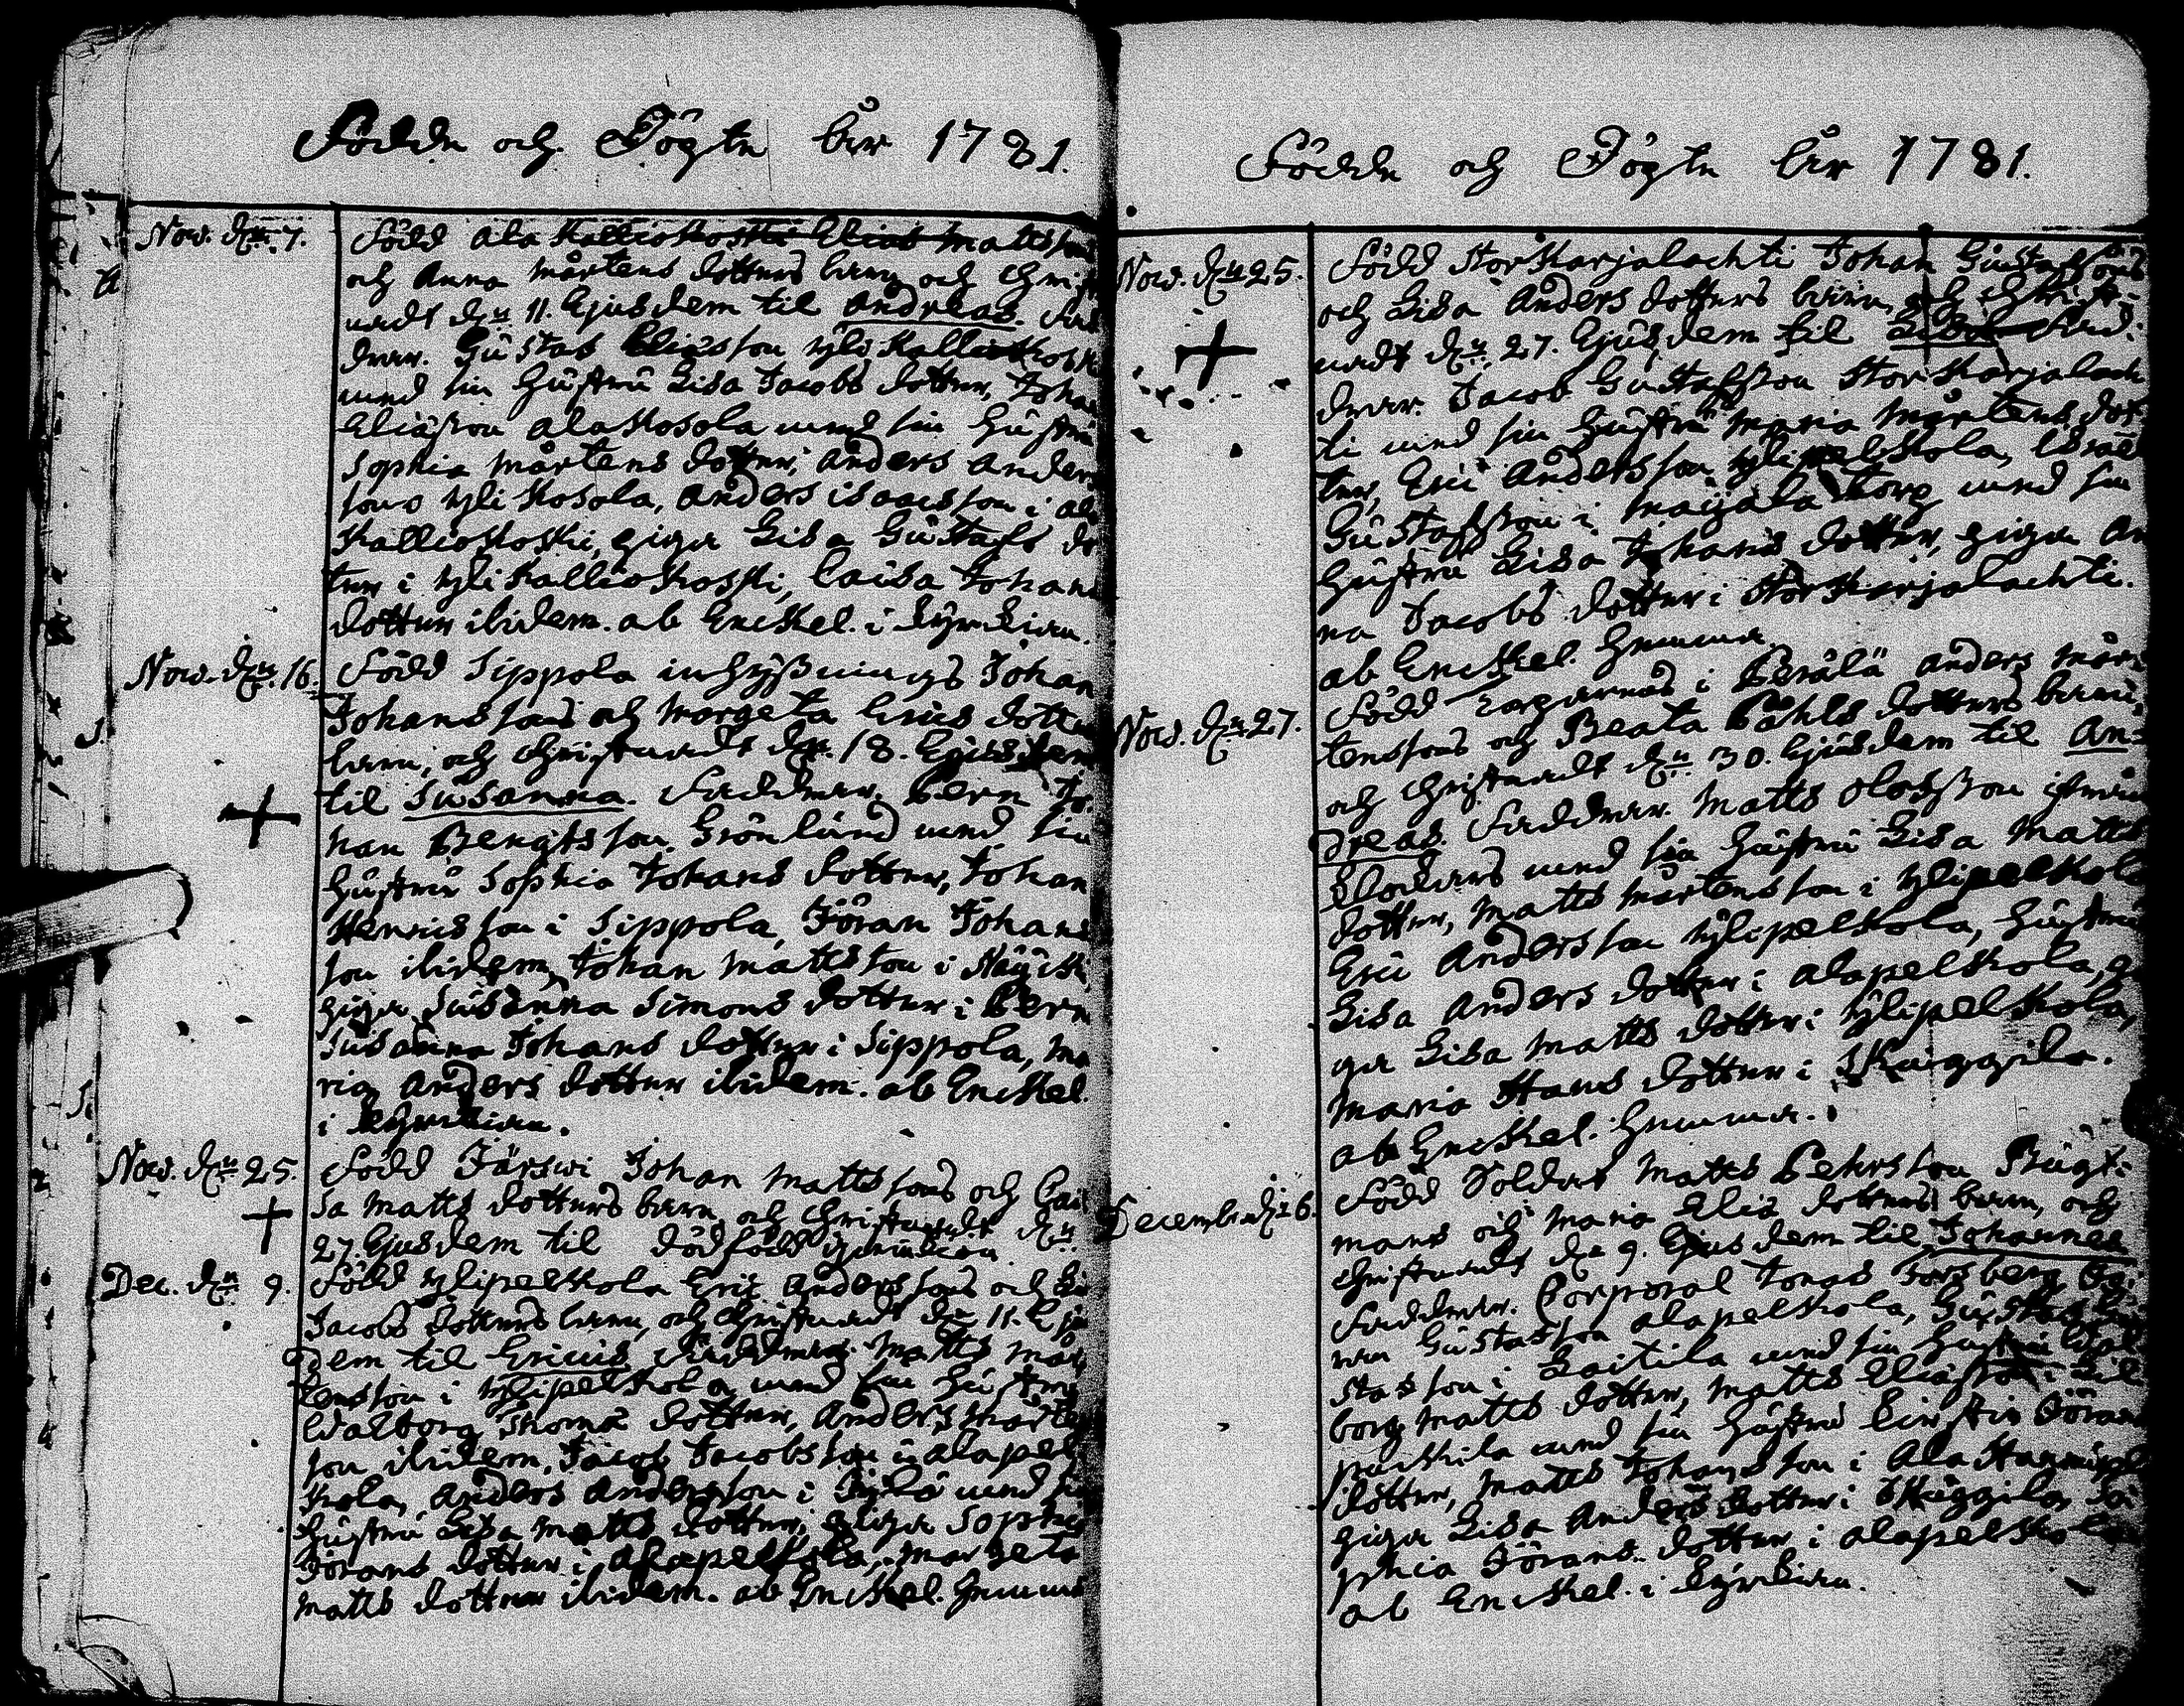 Födde och Döpte åår 1781.
Nov. d. 7.
Född Ala Kallioskoski Elias Matts sons
och Anna Mårtens dotters barn och Christ
nadt d. 11. Ejusdem til Andreas. Fad
drar. Gustaf Eliæ son Yli Kallioskosk
med sin Hustru Lisa Jacobs dotter, Johan
Eliæson Ala Kosola med sin Hustru
Sophia Mårtens dotter, Anders Anders
sons Yli Kosola, Anders Isaacs son i Ala
Kallioskoski, piga Lisa Gustafs dot
ter i Yli Kallioskoski, Caisa Johans
dotter ibidem. ab Enckel. i Kyrckian.
Nov. d. 16.
Född Sippola inhysnings Johan
Johans sons och Margeta Erics dotters
barn, och Christnadt d. 18. Ejusdem
til Susanna. Faddrar. Pern Jo-
han Bengts son Grönlund med sin
Hustru Sophia Johans dotter, Johan
Henrics son i Sippola, Jöran Johans
son ibidem, Johan Matts son i
piga Susanna Simons dotter i Pern
Susanna Johans dotter i Sippola, Ma
ria Anders dotter ibidem. ab Enckel.
i Kyrckian.
Nov. d. 25.
Född Järswi Johan Matts sons och Cai
sa Matts dotters barn och Christnadt d.
27. Ejusdem til död född
Dec. d. 9.
Född Ylipelkola Eric Anders sons och Li
Jacobs dotters barn, och Christnadt d. 11. Ejus
dem til Ericus Faddrar. Matts Mår
tens son i Ylipelkola med sin Hustru
Walborg Thomæ dotter, Anders Mårtens
son ibidem, Jacob Jacobs son i Alapel
kola, Anders Anders son i med sin
Hustru Lisa Matts dotter, piga Sophia
Jörans dotter i Alapelkola, Margeta
Matts dotter ibidem. ab Enckel. Hemma
Födde och Döpte åår 1781.
Nov. d. 25.
Född Stor Karjalachti Johan Gustafsons
och Lisa Anders dotters barn, och Christ-
nadt d. 27. Ejusdem til Fad-
drar. Jacob Gustafsson Stor Karjalach
ti med sin Hustru Maria Mårtens dot
ter, Eric Anders son Ylipelkola, Israel
Gustafsson i Majala Torp med sin
Hustru Lisa Johans dotter, piga An
na Jacobs dotter i Stor Karjalachti.
ab Enckel. Hemma
Nov. d. 27.
Född Torparens i Perälä Anders Mår-
tenssons och Beata Påhls dotters barn,
och Christnadt d. 30. Ejusdem til An-
dreas. Faddrar. Matts Olofsson
med sin Hustru Lisa Matts
dotter, Matts Mårtens son i Ylipelkola
Eric Anders son Ylipelkola, Hustru
Lisa Anders dotter i Alapelkola, pi
ga Lisa Matts dotter i Ylipelkola,
Maria Hans dotter i Skuggila.
ab Enckel. Hemma.
Decemb. d. 6.
Född Soldat Matts Pehrs son
mans och Maria Elis dotters barn, och
Christnadt d. 9. Ejusdem til Johannes
Faddrar. Corporal Jonas Forsberg, Jö-
ran Gustafson Alapelkola, Gustaf
stafson i Laitila med sin Hustru Wal
borg Matts dotter, Matts Eliæson i
med sin Hustru Kirstin Jörans
dotter, Matts Johans son i Ala
piga Lisa Anders dotter i Skuggila, So
phia Jörans dotter i Alapelkola
ab Enckel. i Kyrckian.